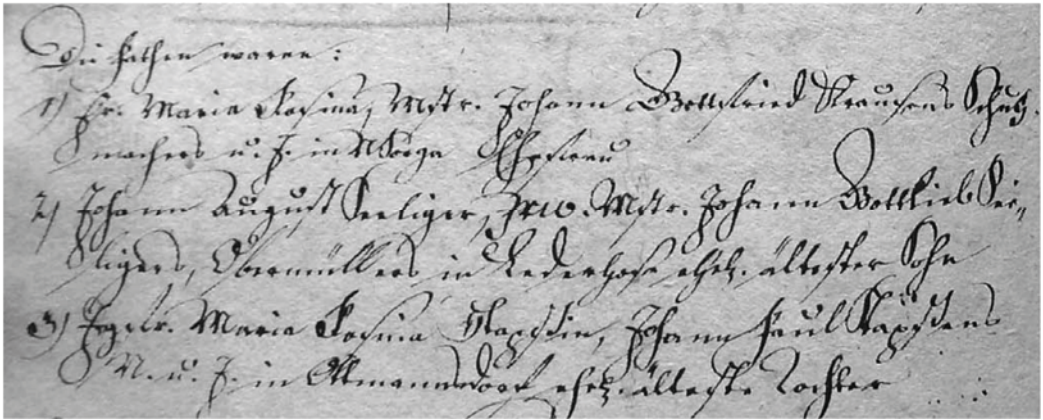 Die Pathen waren:
1) Fr. Maria Rosina, Mstr. Johann Gottfried Krausens Schuh-
machers u. J. in Ehefrau
2) Johann August Seeliger, Mstr. Johann Gottlieb See-
ligers, Obermüllers in Lederhose ehel. ältester Sohn
3) Jgfr. Maria Rosina Johann Paul
N. u. J. in Ottmannsdorf ehel. älteste Tochter